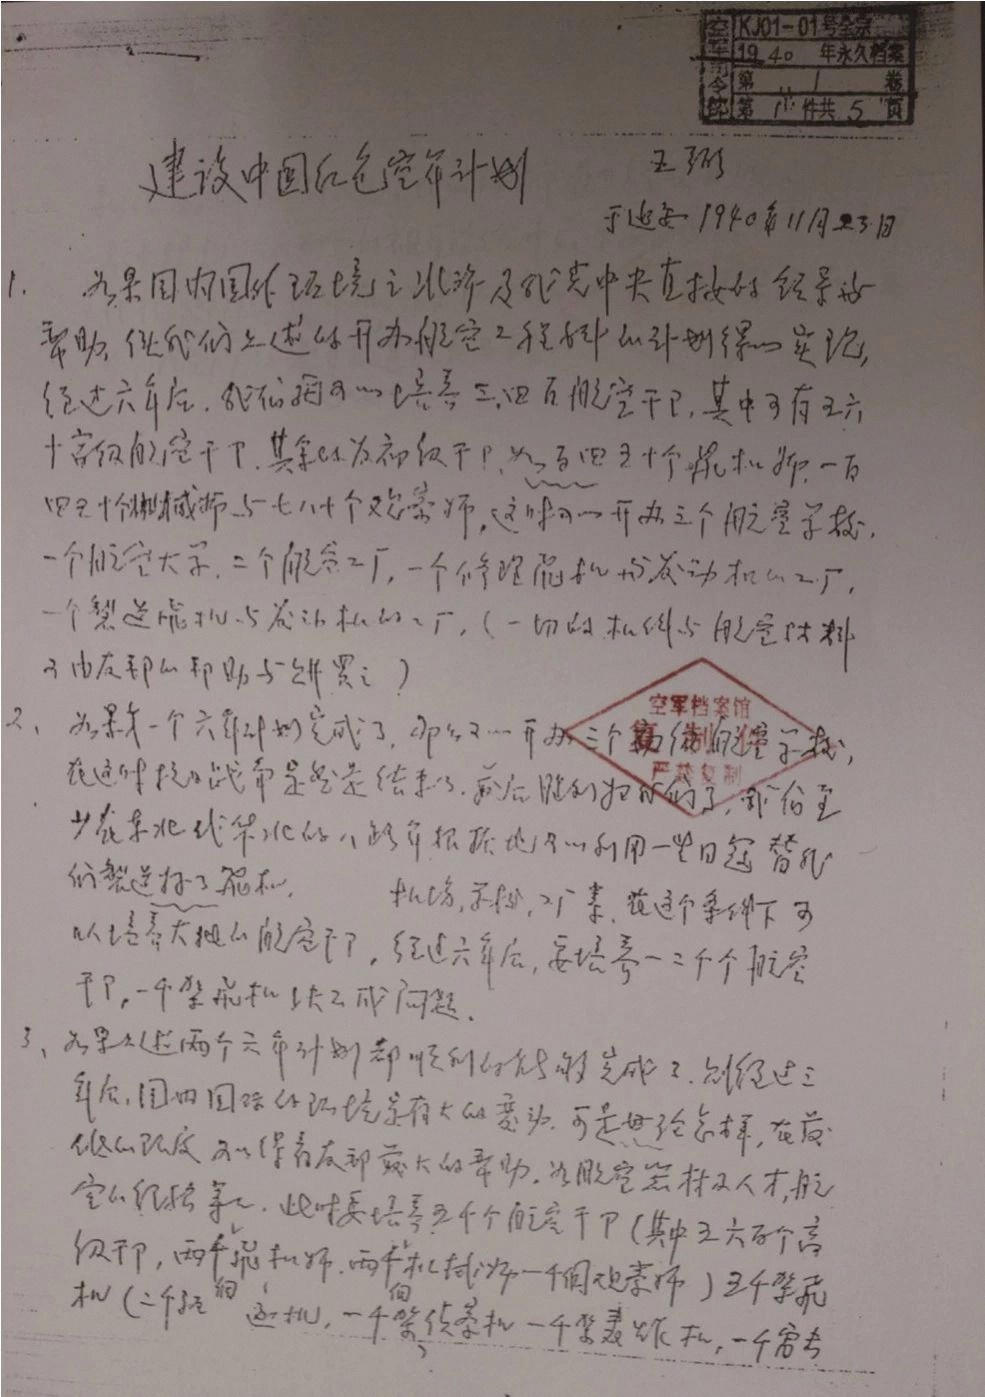 空军司令部
KJ01-01号全宗
1940 年永久档案
第 1 卷
第 1 件共 5 页
建设中国红色空军计划
王弼
于延安 1940年11月23日
1. 如果国内国外环境之北许及我党中央直接的领导与
帮助,使我们上述的开办航空工程科的计划得以实现,
经过六年后,我们可以培养三、四百航空干P,其中可有五六
十高级航空干P,其余的为初级干P,如百四五十个飞机师,一百
四五十个机械师与七八十个观察师,这时可以开办三个航空学校,
一个航空大学,二个航空工厂,一个修理飞机与发动机的工厂,
一个製造飞机与发动机的工厂,(一切的机件与航空材料
可由友邦的帮助与购买之)
2、如果第一个六年计划完成了,即可以开办三个航空学校,
在这时抗日战争是已结束了,最后胜利归我们了,我们至
少在东北或华北的八路军根据地可以利用一些日寇替我
们製造好了飞机, 机场,学校,工厂等,在这个条件下可
以培养大批的航空干P,经过六年后,要培养一二千个航空
干P,一千架飞机是不成问题.
空军档案馆
复制件
严禁复制
3、如果上述两个六年计划都顺利的能够完成了,则经过三
年后,国内国际的环境是有大的变动,可是无论怎样,在最
低的限度可以得着友邦最大的帮助,如航空器材及人才,航
空的经验等等,此时要培养五千个航空干P(其中五六百个高
级干P,两千飞机师,两千机械师一千個观察师)五千架飞
机(二千驱逐机,一千架侦察机一千架轰炸机,一千